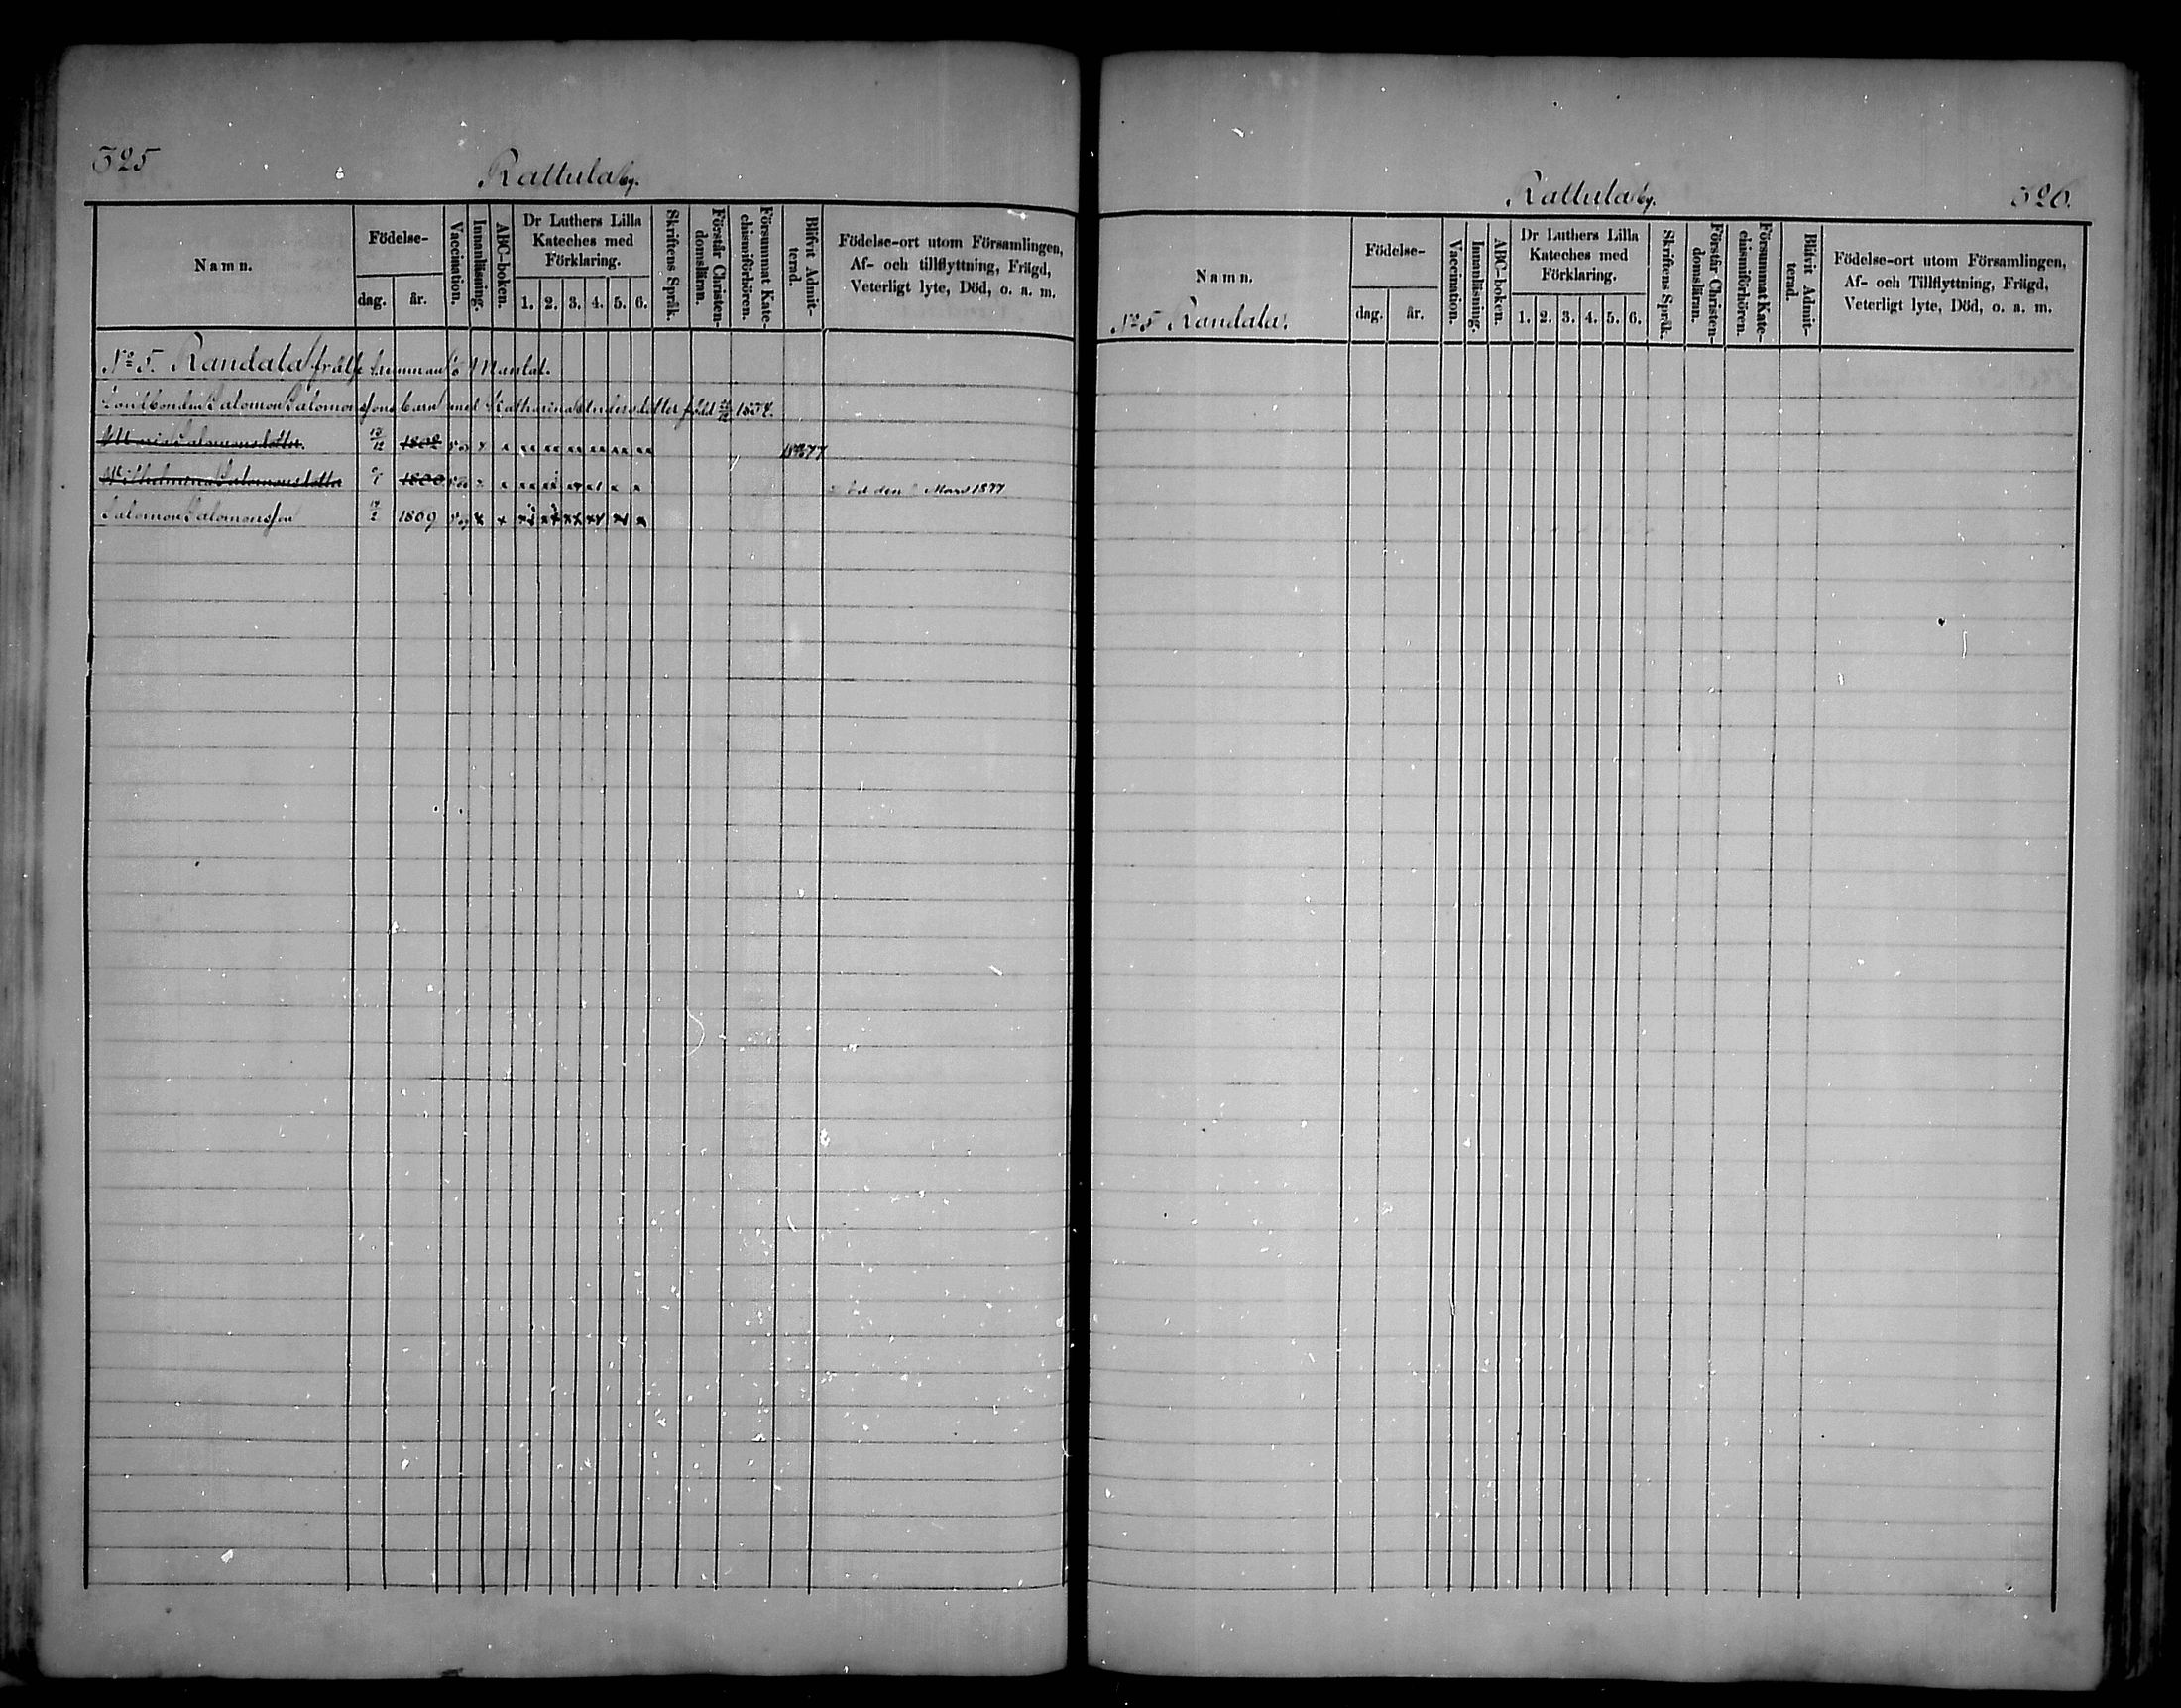 325
Rattula by.
Namn.
Födelse-
dag. år.
Vaccination.
Innanläsning.
ABC-boken.
Dr Luthers Lilla
Kateches med
Förklaring.
1. 2. 3. 4. 5. 6.
Skriftens Språk.
Förstår Christen-
domsläran.
Försummat Kate-
chismiförhören.
Blifvit Admit-
terad.
Födelse-ort utom Församlingen,
Af- och tillflyttning, Frägd,
Veterligt lyte, Död, o. a. m.
No 5. Randala frälse
Salomon Salomonsson barn med Katharina Andersdotter född
Maria Salomonsdotter 12
Wilhelmina Salomonsdotter x x den Mars 1877
Salomon Salomonsson 1869 x x
Rattula by.
326.
Namn.
No 5 Randala.
Födelse-
dag. år.
Vaccination.
Innanläsning.
ABC-boken.
Dr Luthers Lilla
Kateches med
Förklaring.
1. 2. 3. 4. 5. 6.
Skriftens Språk.
Förstår Christen-
domsläran.
Försummat Kate-
chismiförhören.
Blifvit Admit-
terad.
Födelse-ort utom Församlingen,
Af- och Tillflyttning, Frägd,
Veterligt lyte, Död, o. a. m.